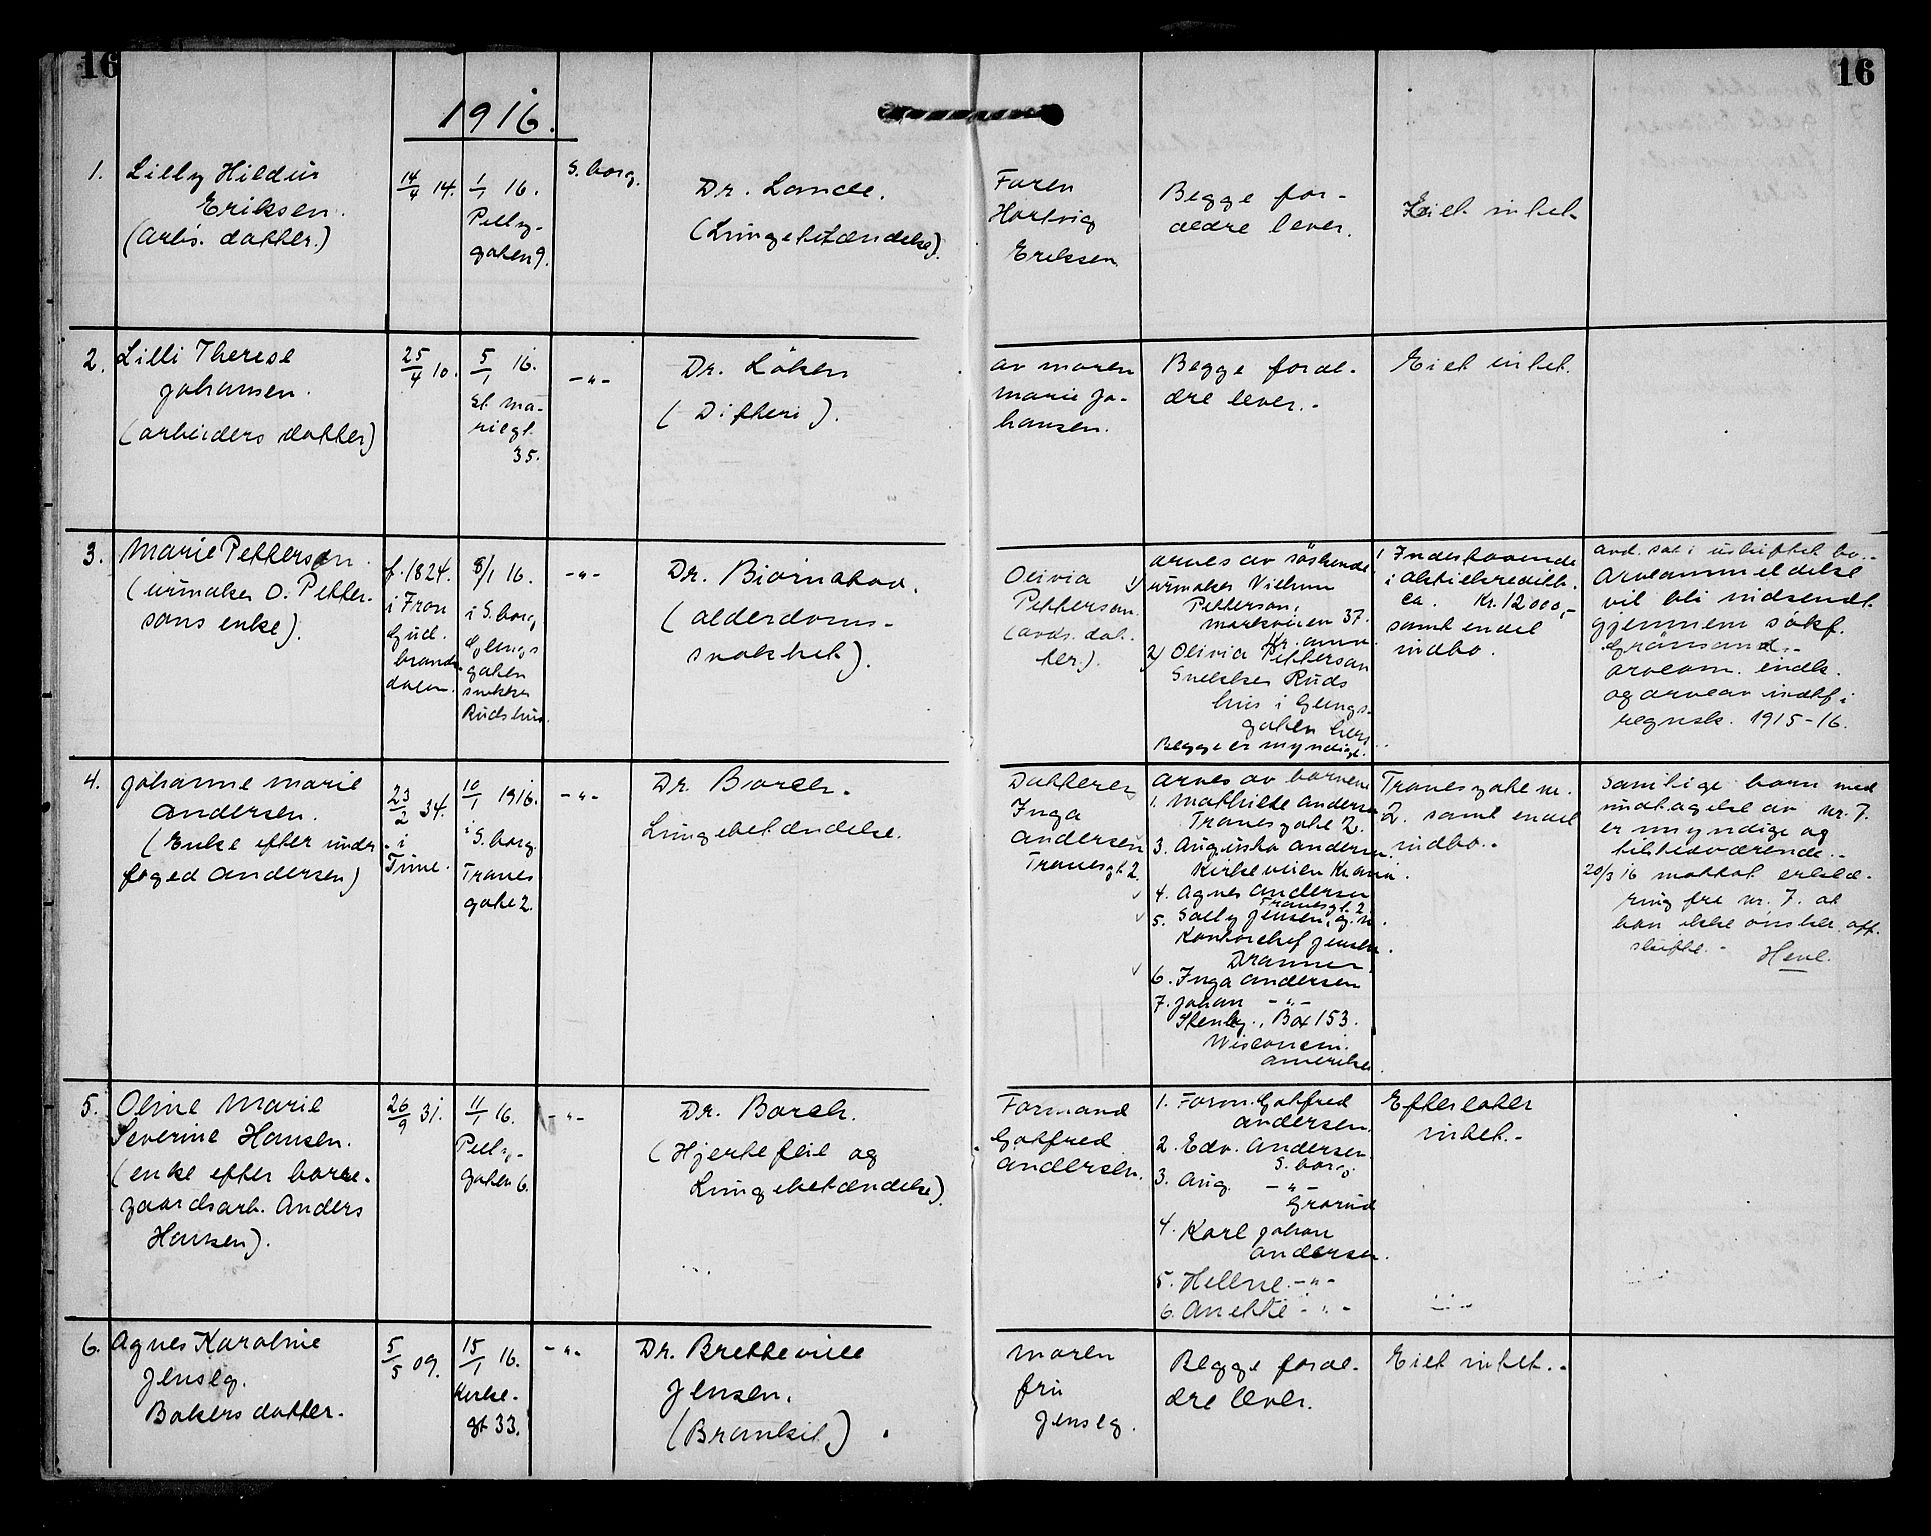 16
16
1916.
1.
Lilly Hildur
Eriksen.
(Arb. datter.)
14/4 14.
1/1 16.
Pelly-
gaten 9.
S. borg.
Dr. Lande.
(Lungebetændelse).
Faren
Hartvig
Eriksen
Begge for-
ældre lever.
Eiet intet.
2.
Lilli Therese
Johansen.
(arbeiders datter)
25/4 10.
5/1 16.
St. Ma-
riegt.
35.
-"-
Dr. Löken
(Difteri).
av moren
Marie Jo-
hansen.
Begge foræl-
dre lever.-
Eiet intet.
3.
Marie Petterson.
(urmaker O. Petter-
sons enke).
f. 1824.
i Fron
Gud-
brands-
dalen.
8/1 16.
i S.borg
Glengs
gaten
snekker
Ruds hus.
-"-
Dr. Biørnstad.
(alderdoms-
svakhet).
Olivia
Petterson.
(avds. dat-
ter.)
arves av söskende
1/ urmaker Vilhelm
Petterson,
Markveien 37.
Kr.ania
2/ Olivia Petterson
Snekker Ruds
hus i Glengs-
gaten hers.
Begge er myndige.
Indestaaende
i Aktiekreditb.
ca. Kr. 12000,-
samt endel
indbo.
avd. sat i uskiftet bo.-
Arveanmeldelse
vil bli indsendt
gjennem sakf.
Grönsand.-
arveanm. indk.
og arveav. indtf. i
regnsk. 1915-16.
4.
Johanne Marie
Andersen.
(Enke efter under
foged Andersen)
23/2 34.
i
Time.
10/1 1916.
i S.borg.
Tranes
gate 2.
-"-
Dr. Borch.
Lungebetændelse.
Datteren
Inga
Andersen
Tranesgt 2.
arves av barnene
1. Mathilde Andersen
Tranesgate 2.
3. Augusta Andersen
Kirkeveien Kr.ania.
4. Agnes Andersen
Tranesgt. 2.
5. Sally Jensen, g. m.
Kontorchef Jensen.
Drammen.
6. Inga Andersen
7. Johan -"-
Box 153.
Wisconsin.
Amerika.
Tranesgate nr.
2. samt endel
indbo.-
Samtlige barn med
undtagelse av nr. 7.
er myndige og
tilstedværende.-
20/3 16 mottat erklæ-
ring fra nr. 7. at
han ikke ønsker off.
skifte.-
5.
Oline Marie
Severine Hansen.
(enke efter borre-
gaardsarb. Anders
Hansen).
26/9 31.
11/1 16.
Pelly-
gaten 6.
-"-
Dr. Borch.
(Hjertefeil og
Lungebetændelse).
Formand
Gotfred
Andersen.
1. Form. Gotfred
Andersen.
2. Edv. Andersen.
S. borg.
3. Aug. -"-
Grorud
4. Karl Johan
Andersen.
5. Hellne. -"-
6. Anette -"-
Efterlater
intet.-
6.
Agnes Karoline
Jenseg.
Bakers datter.
5/5 09.
15/1 16.
Kirke-
gt 33.
-"-
Dr. Bretteville
Jensen.
(Bronkit).
Moren
fru
Jenseg.
Begge foræl-
dre lever.
Eiet intet.-